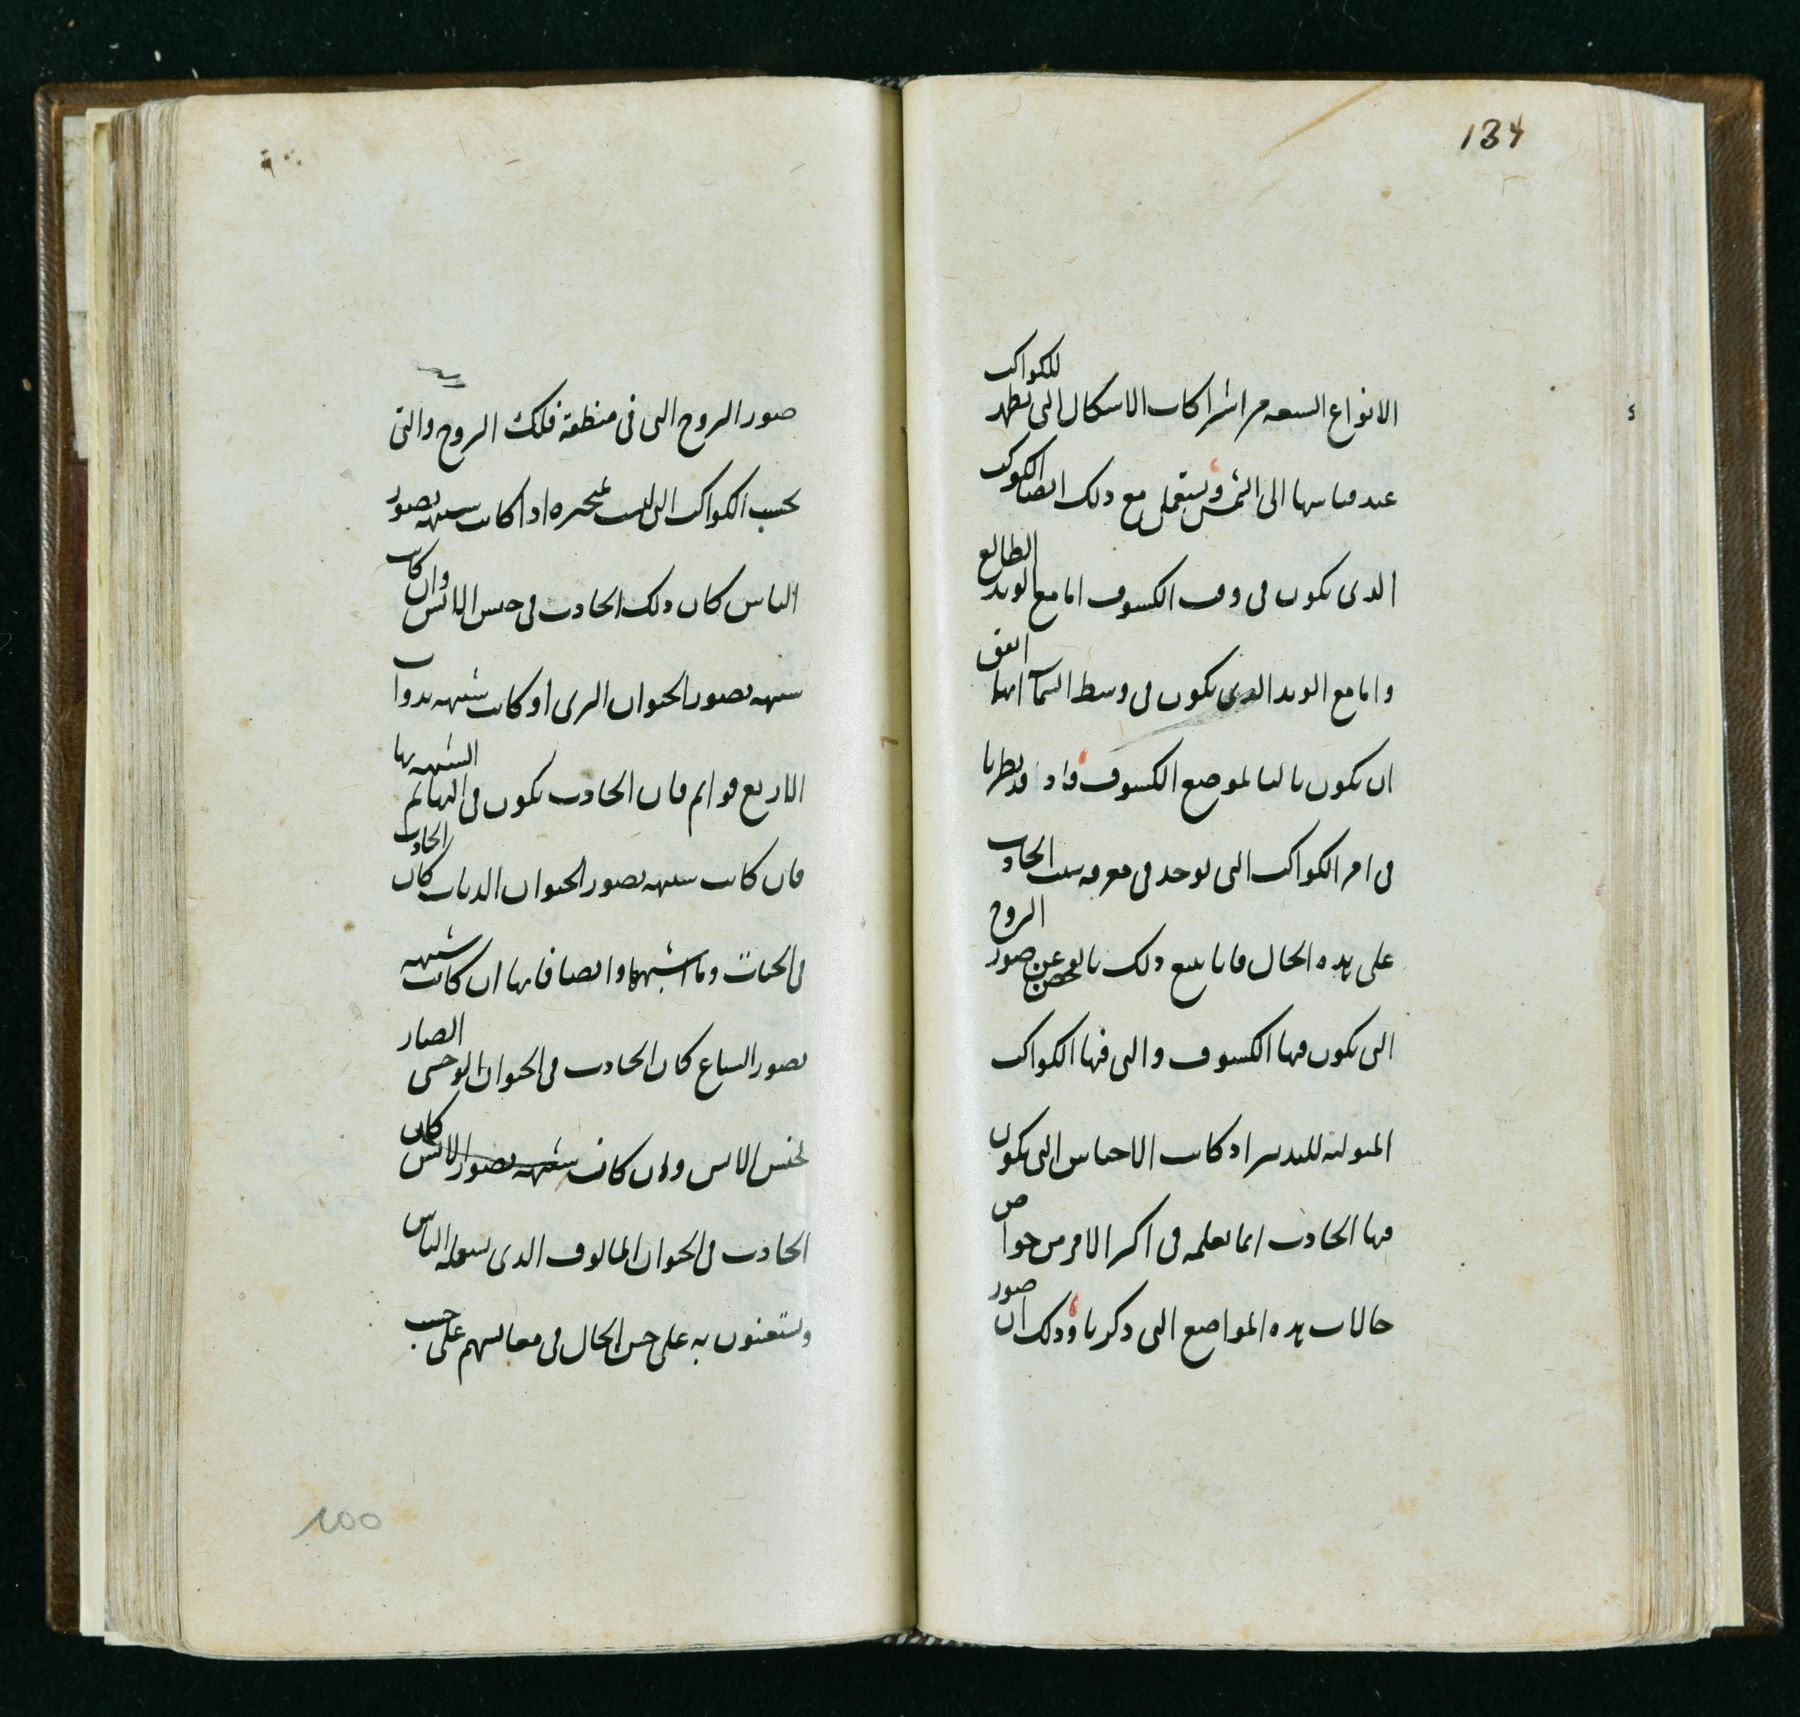 134
الانواع السبعه من اشراكات الاشكال التى تظهر للكواكب
عند قياسها الى الشمس ويستعمل مع ذلك ايضا الكوكب
الذى يكون فى وقت الكسوف اما مع الوتد الطالع
واما مع الوتد الذى يكون فى وسط السمآ ايهما اتفق
ان يكون تاليا لموضع الكسوف واذا قد نظرنا
فى امر الكواكب التى توجد فى معرفه سبب الحادث
على هذه الحال فانا نتبع ذلك بالفحص عن صور البروج
التى يكون فيها الكسوف والتى فيها الكواكب
المتوليه للتدبير اذ كانت الاجناس التى يكون
فيها الحادث انما نعلمه فى اكثر الامر من خواص
حالات هذه المواضع التى ذكرنا وذلك ان صور
صور البروج التى فى منطقة فلك البروج والتى
بحسب الكواكب التى ليست بمتحيره اذا كانت شبيهه بصور
الناس كان ذلك الحادث فى جنس الانس وان كانت
شبيهه بصور الحيوان البرى او كانت شبيهه بدواب
الاربع قوائم فان الحادث يكون فى البهائم الشبيهه بها
فان كانت شبيهه بصور الحيوان الدباب كان الحادث
فى الحيات وما اشبهها وايضا فانها ان كانت شبيهه
بصور السباع كان الحادث فى الحيوان الوحشى الضار
لجنس الانس وان كانت شبيهه بصور الانس كان
الحادث فى الحيوان المالوف الذى يستعمله الناس
ويستعينون به على حسن الحال فى معايشهم على حسب
100